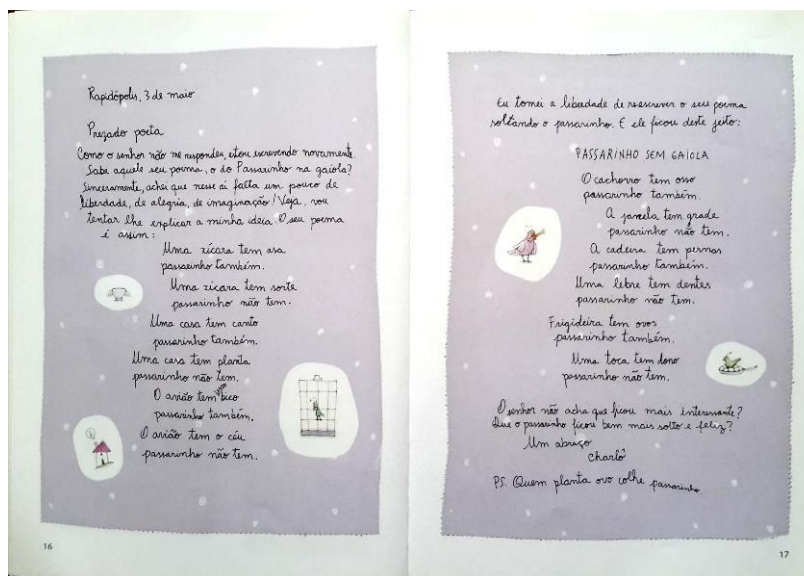 Rapidópolis, 3 de maio
Prezado poeta
Como o senhor não me respondeu, estou escrevendo novamente.
Sabe aquele seu poema, o do Passarinho na gaiola?
Sinceramente, achei que nesse aí falta um pouco de
liberdade, de alegria, de imaginação! Veja, vou
tentar lhe explicar a minha ideia. O seu poema
é assim:
Uma xícara tem asa
passarinho também.
Uma xícara tem sorte
passarinho não tem.
Uma casa tem canto
passarinho também.
Uma casa tem planta
passarinho não tem.
O avião tem bico
passarinho também.
O avião tem o céu
passarinho não tem.
16
Eu tomei a liberdade de reescrever o seu poema
soltando o passarinho. E ele ficou deste jeito:
PASSARINHO SEM GAIOLA
O cachorro tem osso
passarinho também.
A janela tem grade
passarinho não tem.
A cadeira tem pernas
passarinho também.
Uma lebre tem dentes
passarinho não tem.
Frigideira tem ovos
passarinho também.
Uma toca tem dono
passarinho não tem.
O senhor não acha que ficou mais interessante?
Que o passarinho ficou bem mais solto e feliz?
Um abraço
Charlô
PS. Quem planta ovo colhe passarinho.
17